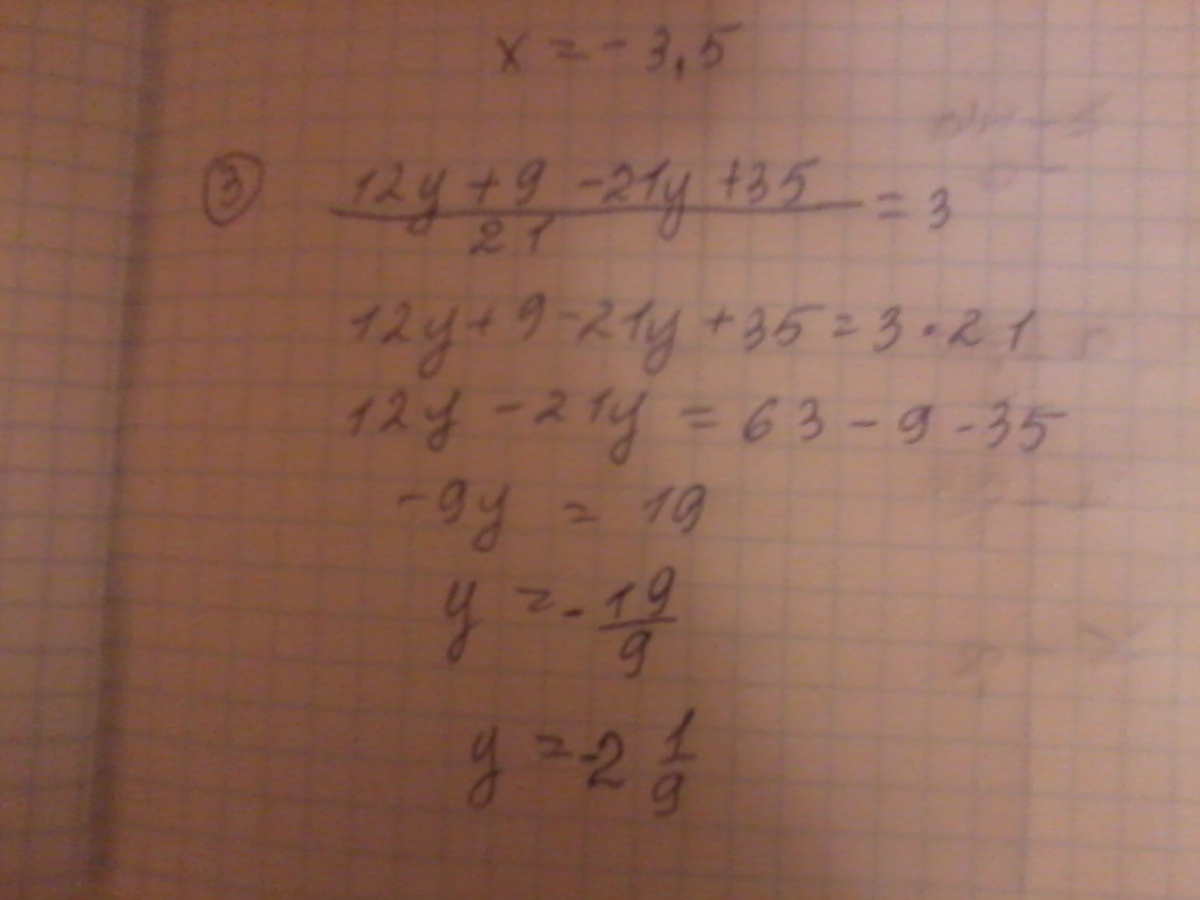 x = -3,5
③ 12y + 9 - 21y + 35 / 21 = 3
12y + 9 - 21y + 35 = 3 · 21
12y - 21y = 63 - 9 - 35
-9y = 19
y = - 19/9
y = -2 1/9